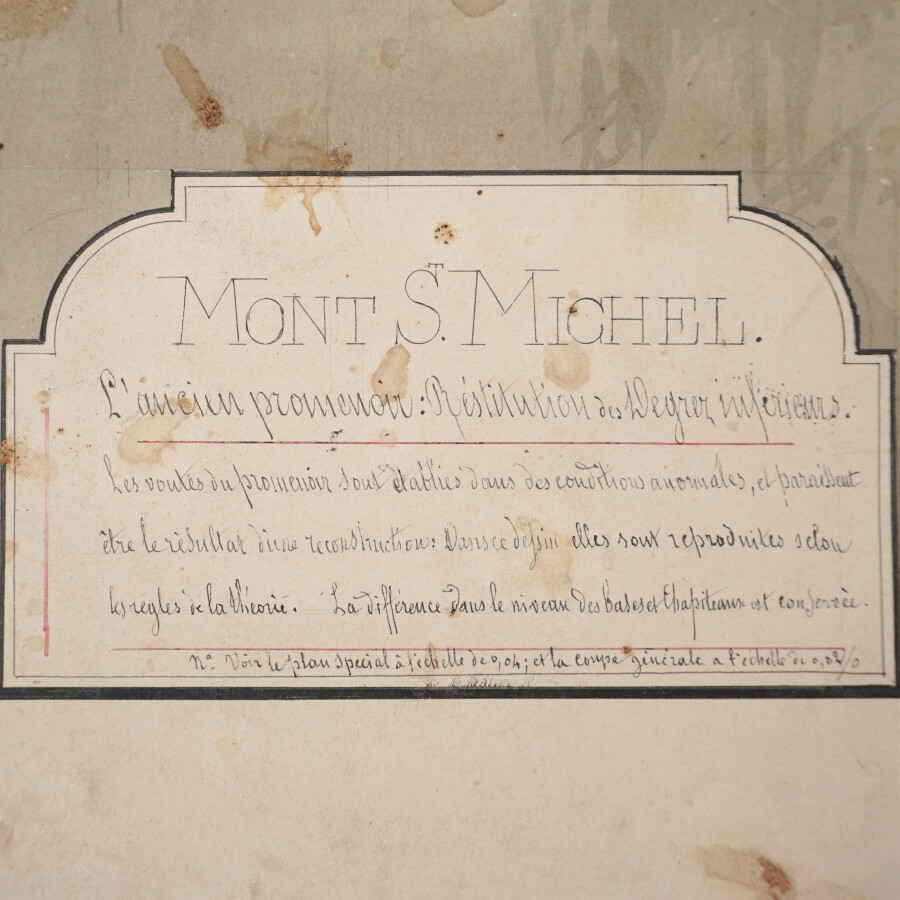 MONT ST. MICHEL.
L'ancien promenoir: Réstitution des Degrez inférieurs.
Les voutes du promenoir sont établies dans des conditions anormales, et paraissent
être le résultat d'une reconstruction: Dans ce dessin elles sont reproduites selon
les regles de la théorie. La différence dans le niveau des bases et Chapiteaux est conservée.
Na Voir le plan special à l'échelle de 0,04; et la coupe générale a l'échelle de 0,02